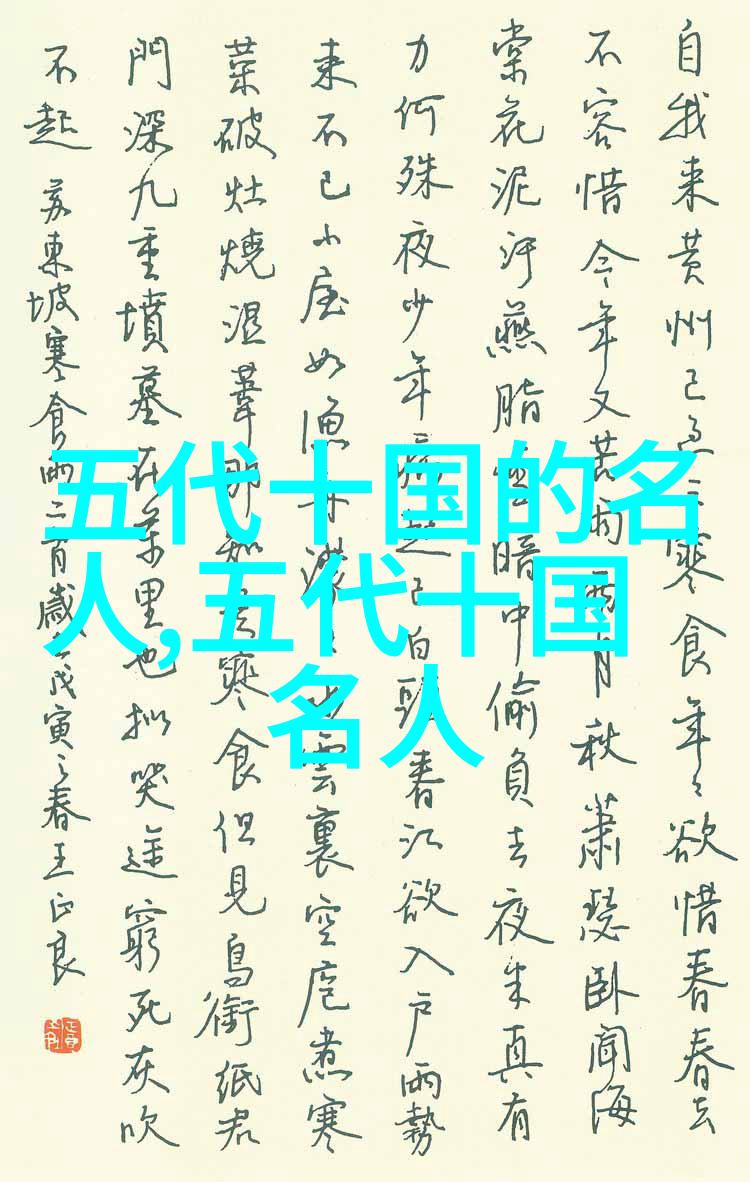 五代十国的名
人,五代十国
名人
自我来黄州已过三寒食年々欲惜春春去
不容惜今年又苦雨两月秋萧瑟卧闻海
棠花泥汙燕脂雪暗中偷負去夜半真有
力何殊夜少年病起已白頭春江欲入户雨勢
来不已小屋如漁舟濛々水雲裏空庖煮寒
菜破灶燒湿葦那知是寒食但見烏銜纸君
門深九重墳墓在萬里也拟哭途窮死灰吹
不起 苏東坡寒食雨二首歲次戊寅之春王正良